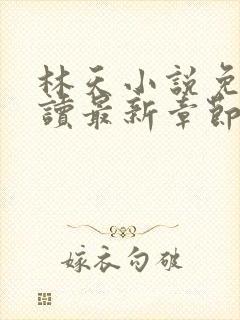 林天小說免
讀最新章節
嫁衣勿破